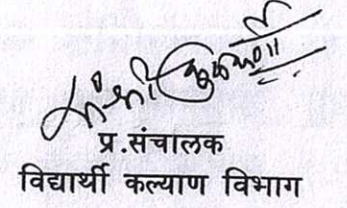 प्र.संचालक
विद्यार्थी कल्याण विभाग